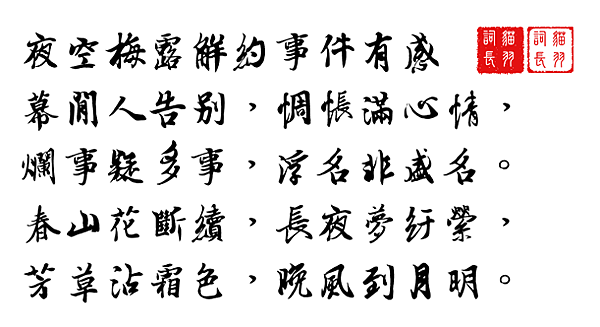 夜空梅露解約事件有感
幕間人告別，惆悵滿心情，
爛事疑多事，浮名非盛名。
春山花斷續，長夜夢紆縈，
芳草沾霜色，晚風到月明。
貓羽詞長
貓羽詞長